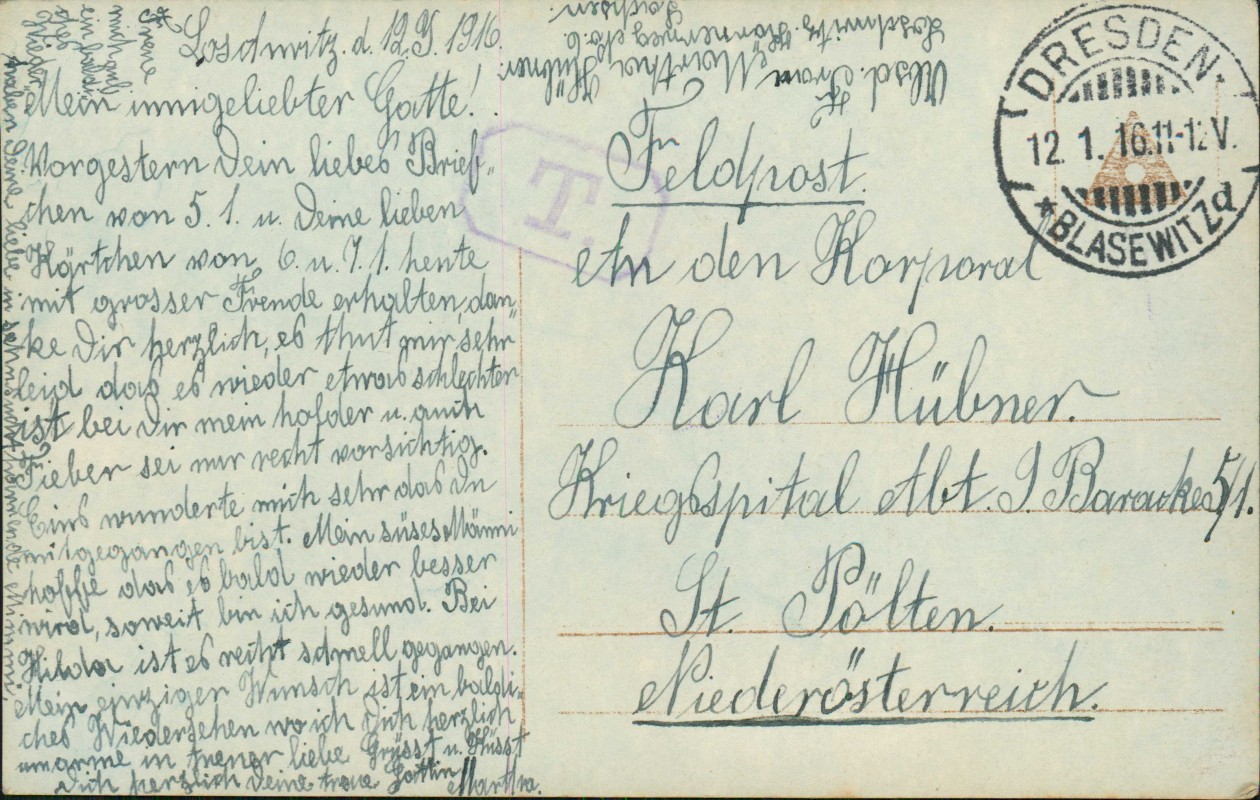 Loschwitz. d. 12.9.1916.
Mein inniggeliebter Gatte!
Vorgestern Dein liebes Brief„
chen von 5. 1. u. Deine lieben
Kärtchen von 6. u. 7. 1. heute
mit grosser Freude erhalten, dan„
ke Dir herzlich, es thut mir sehr
leid das es wieder etwas schlechter
ist bei Dir mein holder u. auch
Fieber sei nur recht vorsichtig.
Eins wunderte mich sehr das Du
mitgegangen bist. Mein süses Männi
hoffe das es bald wieder besser
wird, soweit bin ich gesund. Bei
Hilda ist es recht schnell gegangen.
Mein einziger Wunsch ist ein baldi„
ches Wiedersehen wo ich Dich herzlich
umarme in treuer liebe Grüsst u. Küsst
Dich herzlich Deine treue Gattin Martha.
Deine liebe u.
Absd. Frau Martha Hübner
Loschwitz, No. 6.
Sachsen.
Feldpost.
An den Korporal
Karl Hübner.
Kriegsspital Abt. I Baracke 5/1.
St. Pölten.
Niederösterreich.
T.
DRESDEN-
12. 1. 16. 11-12 V.
* BLASEWITZ d